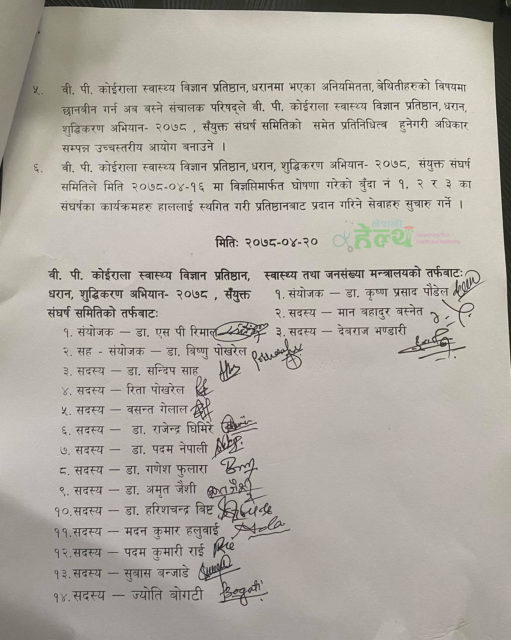 ५. बी. पी. कोईराला स्वास्थ्य विज्ञान प्रतिष्ठान, धरानमा भएका अनियमितता, बेथितीहरुको विषयमा
छानबीन गर्न अब बस्ने संचालक परिषद्ले बी. पी. कोईराला स्वास्थ्य विज्ञान प्रतिष्ठान, धरान,
शुद्धिकरण अभियान- २०७८, सँयुक्त संघर्ष समितिको समेत प्रतिनिधित्व हुनेगरी अधिकार
सम्पन्न उच्चस्तरीय आयोग बनाउने ।
६. बी. पी. कोईराला स्वास्थ्य विज्ञान प्रतिष्ठान, धरान, शुद्धिकरण अभियान- २०७८, संयुक्त संघर्ष
समितिले मिति २०७८-०४-१६ मा विज्ञप्तिमार्फत घोषणा गरेको बुँदा नं १, २ र ३ का
संघर्षका कार्यक्रमहरु हाललाई स्थगित गरी प्रतिष्ठानबाट प्रदान गरिने सेवाहरु सुचारु गर्ने ।
हेल्थ
मितिः २०७८-०४-२०
बी. पी. कोईराला स्वास्थ्य विज्ञान प्रतिष्ठान,
धरान, शुद्धिकरण अभियान- २०७८ , सँयुक्त
संघर्ष समितिको तर्फबाटः
१. संयोजक – डा. एस पी रिमाल
२. सह - संयोजक – डा. विष्णु पोखरेल
३. सदस्य – डा. सन्दिप साह
४. सदस्य – रिता पोखरेल
५. सदस्य – बसन्त गेलाल
६. सदस्य – डा. राजेन्द्र घिमिरे
७. सदस्य – डा. पदम नेपाली
८. सदस्य – डा. गणेश फुलारा
९. सदस्य – डा. अमृत जैशी
१०. सदस्य – डा. हरिशचन्द्र विष्ट
११. सदस्य – मदन कुमार हलुवाई
१२. सदस्य – पदम कुमारी राई
१३. सदस्य – सुवास बन्जाडे
१४. सदस्य – ज्योति बोगटी
Bogati
स्वास्थ्य तथा जनसंख्या मन्त्रालयको तर्फबाटः
१. संयोजक – डा. कृष्ण प्रसाद पौडेल
२. सदस्य – मान बहादुर बस्नेत
३. सदस्य – देवराज भण्डारी